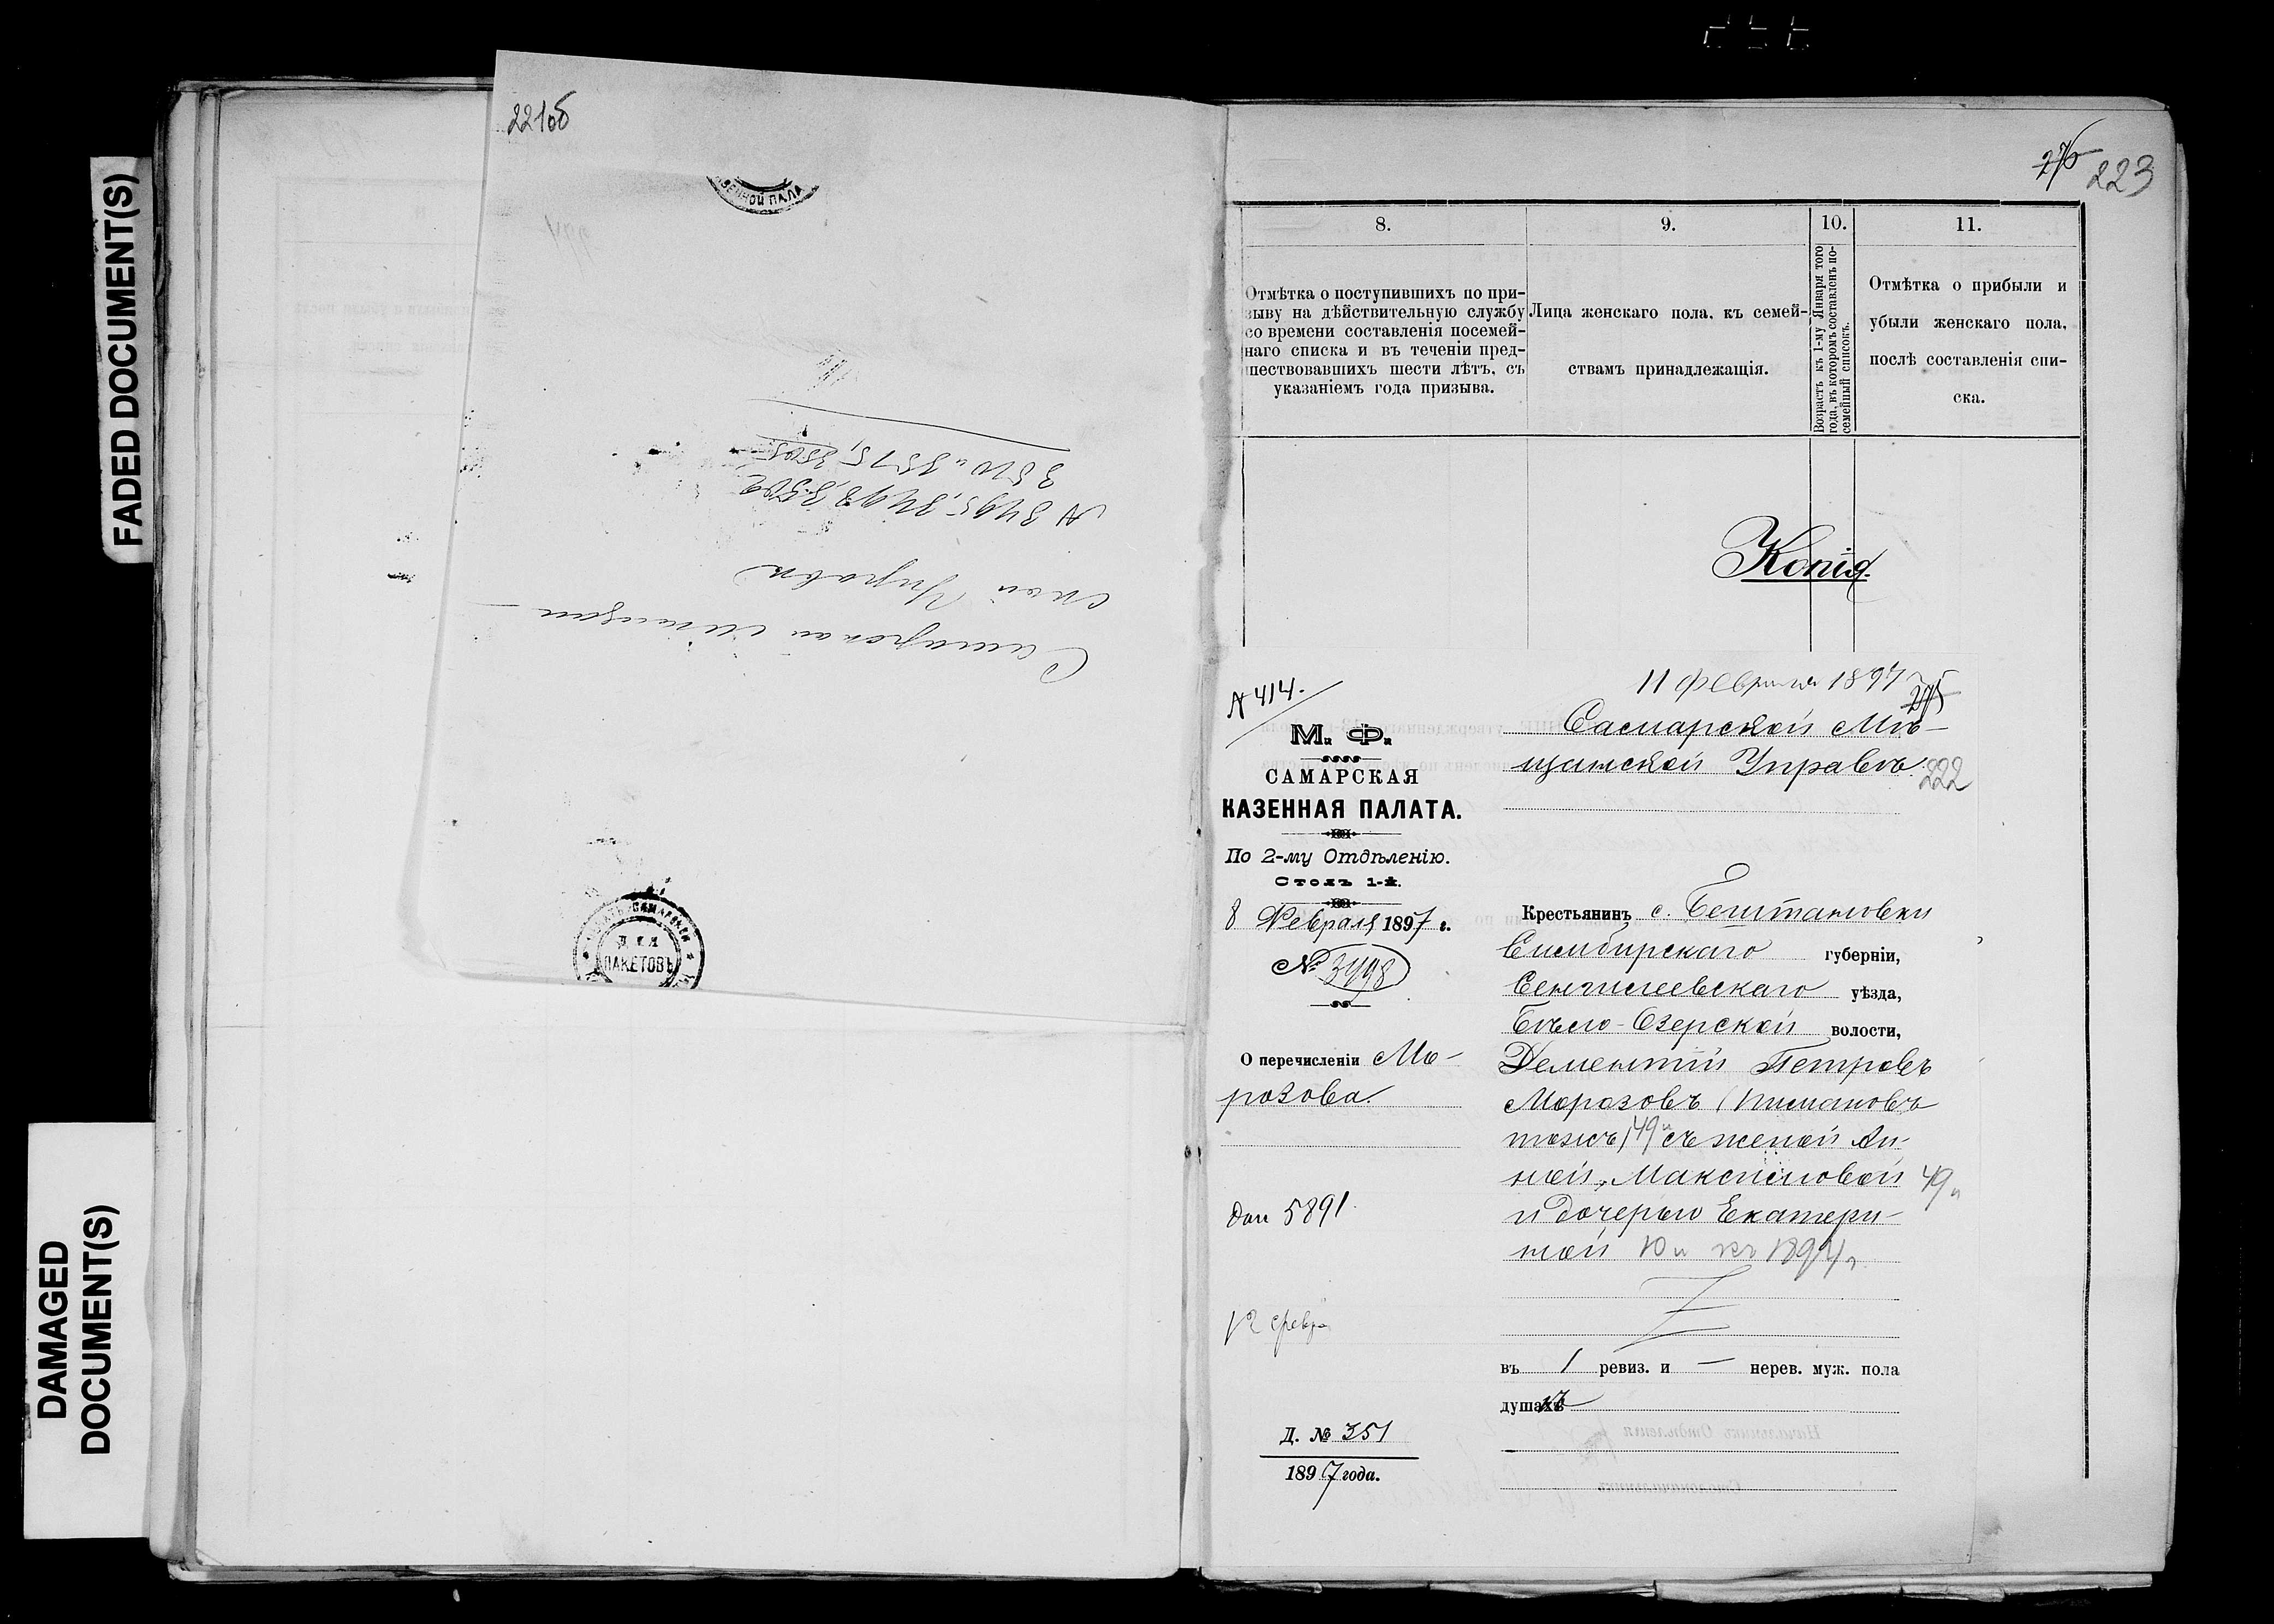 FADED DOCUMENT(S)
DAMAGED
DOCUMENT(S)
221об
ЗЕННОЙ ПАЛА
Самарской Мещан-
ской Управе
№ 3495, 3498, 3502
3510 и 3515, 3505
САМАРСКОЙ
ДЛЯ
ПАКЕТОВЪ
276 223
8.
9.
10.
11.
Отмѣтка о поступившихъ по при-
зыву на дѣйствительную службу
со времени составленія посемей-
наго списка и въ теченіи пред-
шествовавшихъ шести лѣтъ, съ
указаніемъ года призыва.
Лица женскаго пола, къ семей-
ствамъ принадлежащія.
Возрастъ къ 1-му Января того
года, въ которомъ составленъ по-
семейный списокъ.
Отмѣтка о прибыли и
убыли женскаго пола,
послѣ составленія спи-
ска.
Копія.
№ 414.
М. Ф.
САМАРСКАЯ
КАЗЕННАЯ ПАЛАТА.
По 2-му Отдѣленію.
Столъ 1-й.
8 Февраля 1897 г.
№ 3498
О перечисленіи Мо-
розова.
5891
12 февр
Д. № 351
1897 года.
11 февраля 1897
275
Самарской Мѣ-
щанской Управѣ.
222
Крестьянинъ с. Бештановки
Симбирскаго губерніи,
Сенгилеевскаго уѣзда,
Бѣло-Озерской волости,
Дементій Петровъ
Морозовъ (Пимановъ
тожъ) 49 съ женой Ан-
ной Максимовой 49
и дочерью Екатери-
ной 10 къ 1894 г.
въ 1 ревиз. и — нерев. муж. пола
душахъ